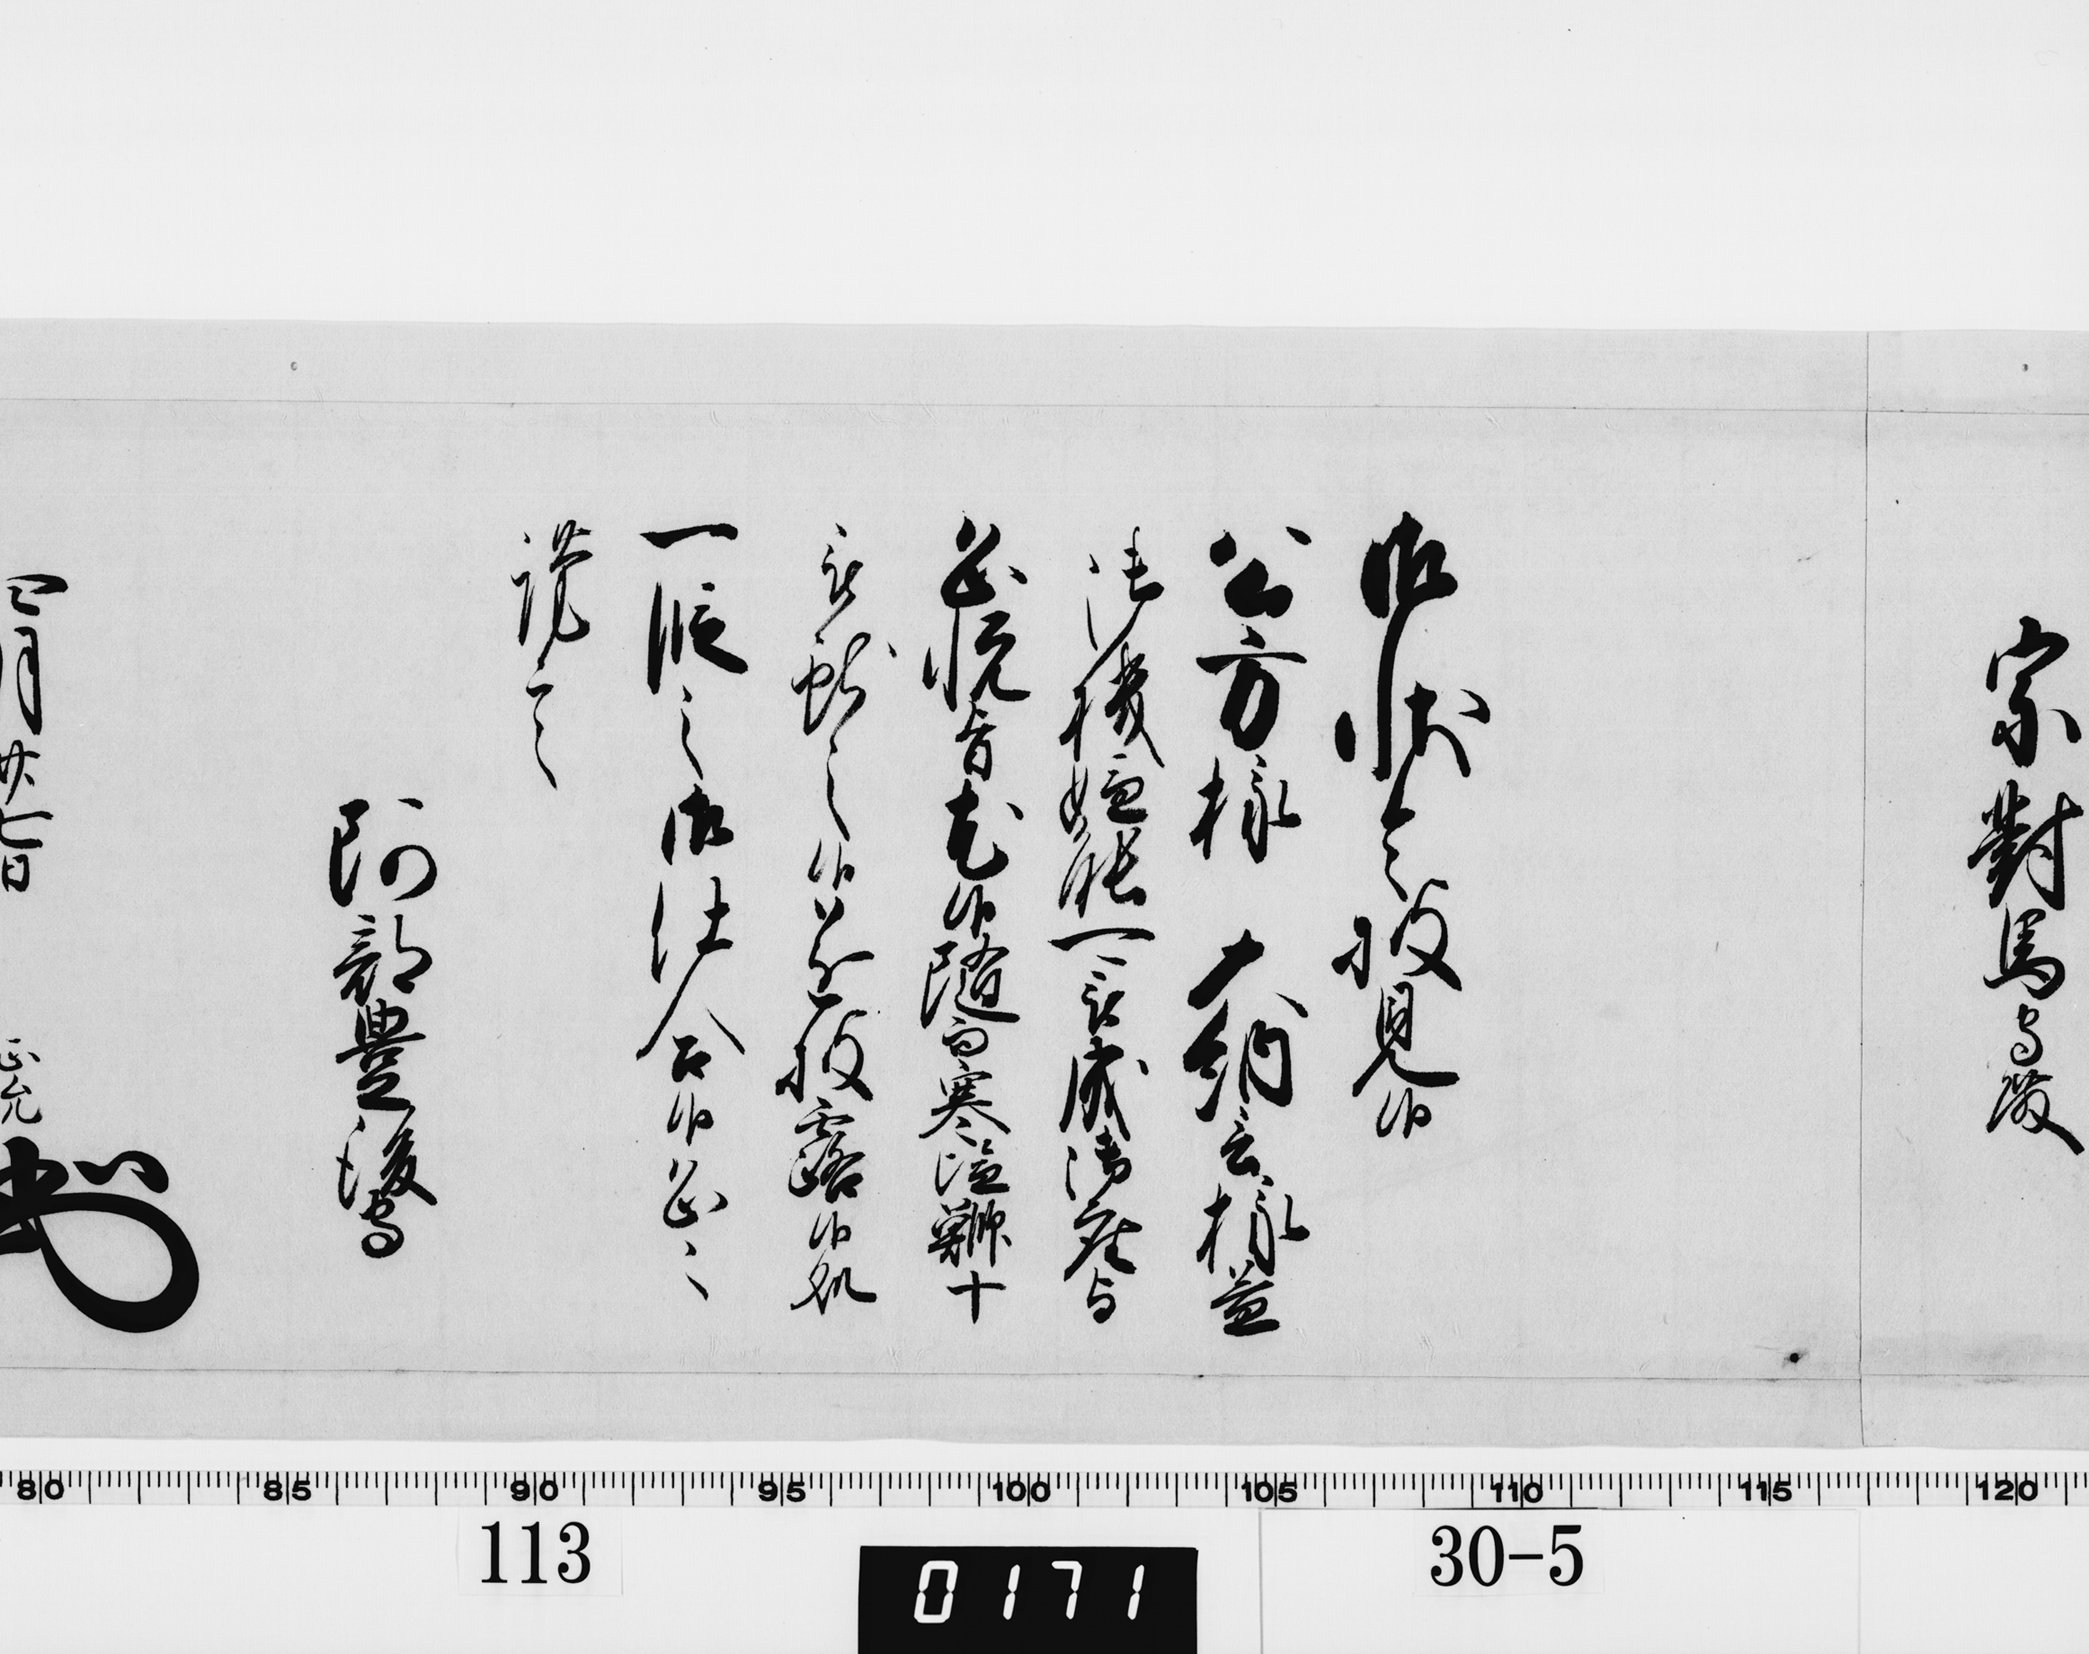 宗對馬守殿
御状令披見候
公方様 大納言様益
御機嫌能一被成御座与
恐悦旨尤候随而寒塩鱈十
被献之候遂披露候処
一段之御仕合候恐々
謹言
阿部豊後守
四月廿七日
正允
80 85 90 95 100 105 110 115 120
113
0171
30-5